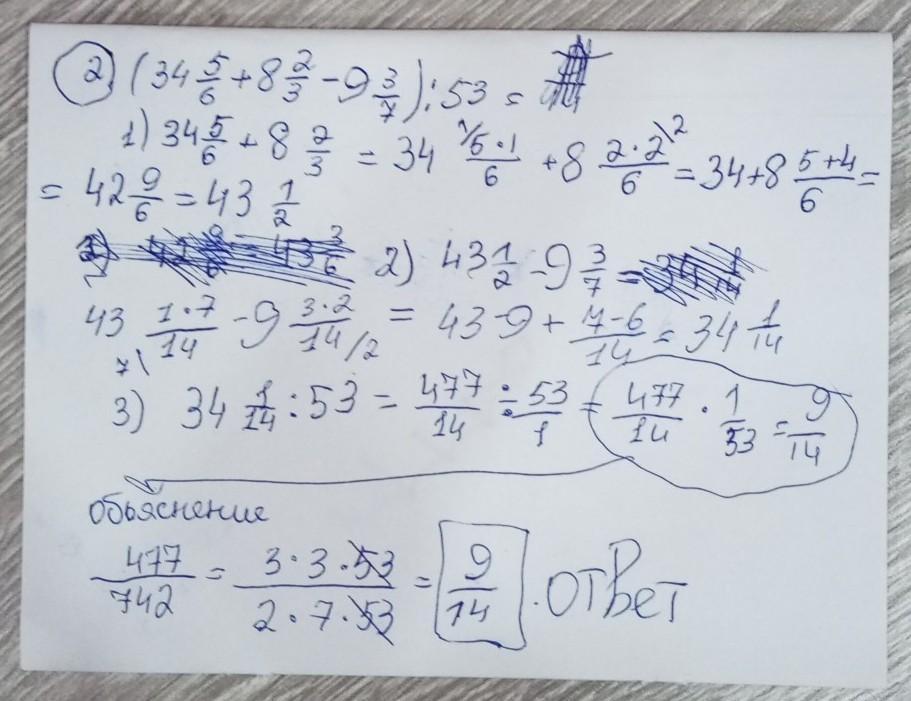 2) (34 5/6 + 8 2/3 - 9 3/7) : 53 =
1) 34 5/6 + 8 2/3 = 34 5·1/6 + 8 2·2/6 = 34+8 5+4/6 =
= 42 9/6 = 43 1/2
2) 43 1/2 - 9 3/7 =
43 1·7/14 - 9 3·2/14 = 43-9 + 7-6/14 = 34 1/14
3) 34 1/14 : 53 = 477/14 ÷ 53/1 = 477/14 · 1/53 = 9/14
обьяснение
477/742 = 3·3·53/2·7·53 = 9/14 . ответ